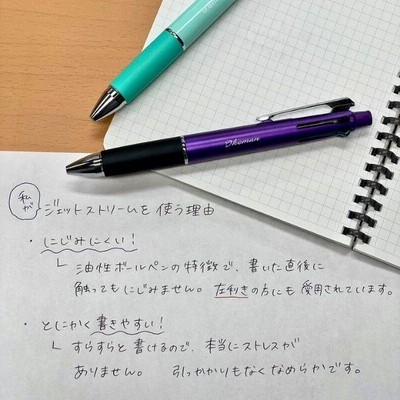 私が ジェットストリームを 使う理由
・にじみにくい!
└ 油性ボールペンの特徴で、書いた直後に
触ってもにじみません。左利きの方にも愛用されています。
・とにかく書きやすい!
└ すらすらと書けるので、本当にストレスが
ありません。 引っかかりもなくなめらかです。